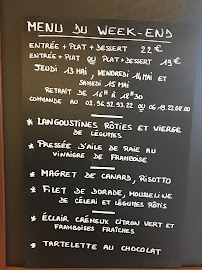 MENU DU WEEK-END
ENTRÉE + PLAT + DESSERT 22 €
ENTRÉE + PLAT OU PLAT + DESSERT 19 €
JEUDI 13 MAI, VENDREDI 14 MAI ET
SAMEDI 15 MAI
RETRAIT DE 16H À 18H30
COMMANDE AU 02.56.52.93.22 OU 06.19.22.08.00
* LANGOUSTINES RÔTIES ET VIERGE
DE LÉGUMES
* PRESSÉE D'AILE DE RAIE AU
VINAIGRE DE FRAMBOISE
* MAGRET DE CANARD, RISOTTO
* FILET DE DORADE, MOUSSELINE
DE CÉLERI ET LÉGUMES RÔTIS
* ÉCLAIR CRÉMEUX CITRON VERT ET
FRAMBOISES FRAÎCHES
* TARTELETTE AU CHOCOLAT